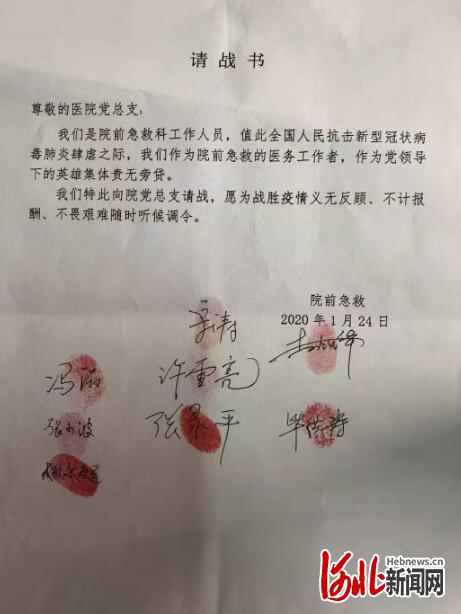 请战书
尊敬的医院党总支:
我们是院前急救科工作人员，值此全国人民抗击新型冠状病
毒肺炎肆虐之际，我们作为院前急救的医务工作者，作为党领导
下的英雄集体责无旁贷。
我们特此向院党总支请战，愿为战胜疫情义无反顾、不计报
酬、不畏艰难随时听候调令。
院前急救
2020年1月24日
许雪亮
张永平
张少波
Hebnews.cn
河北新闻网